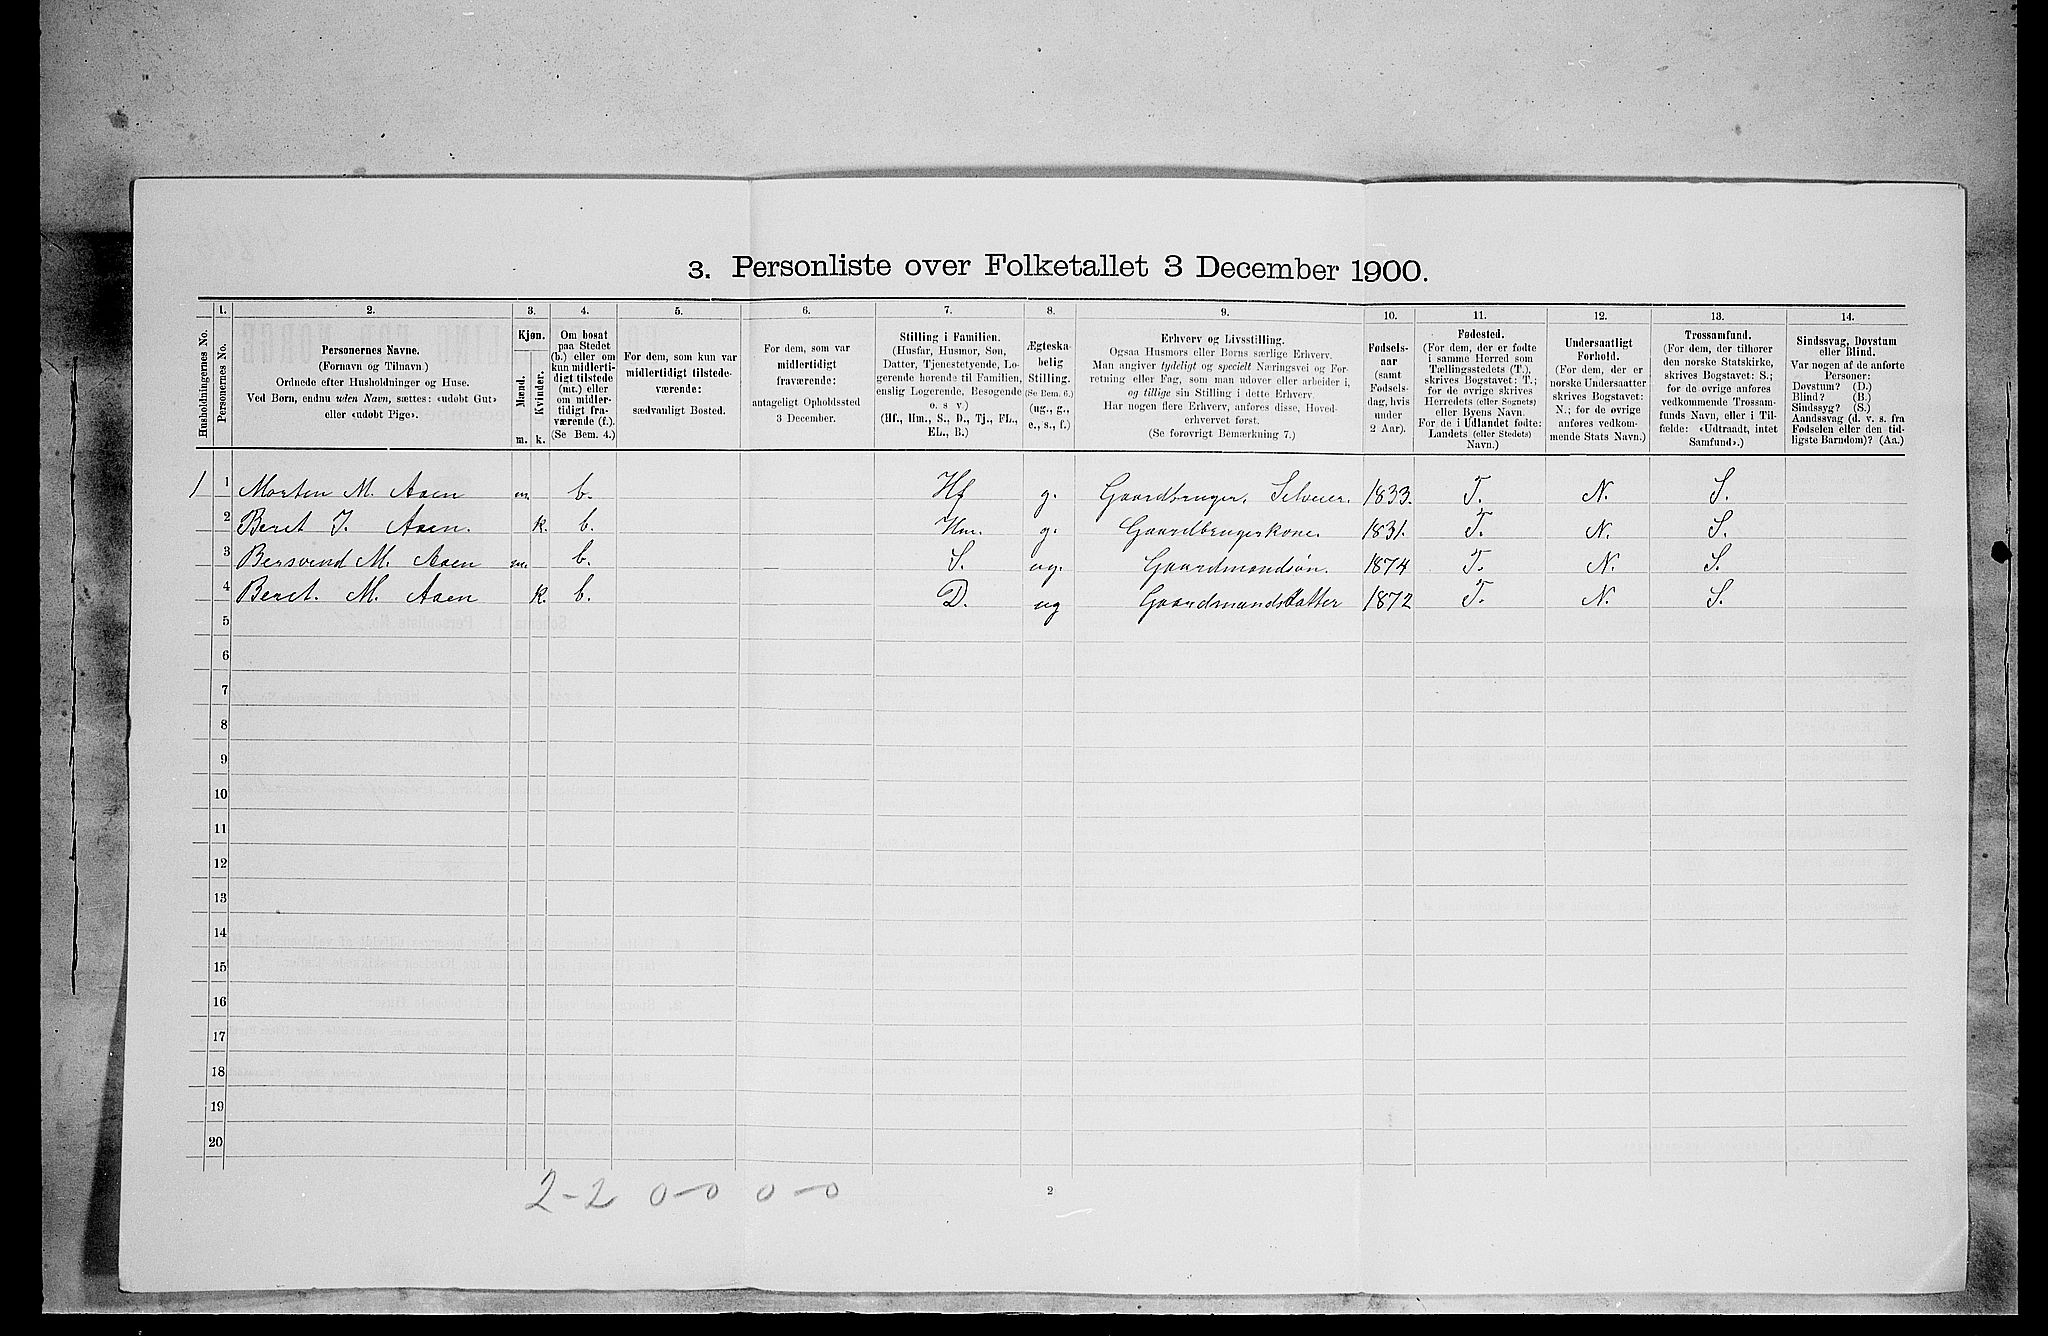 3. Personliste over Folketallet 3 December 1900.
Husholdningernes No.
1.
Personernes No.
2.
Personernes Navne.
(Fornavn og Tilnavn.)
Ordnede efter Husholdninger og Huse.
Ved Børn, endnu uden Navn, sættes: «udobt Gut»
eller «udobt Pige».
3.
Kjøn.
Mænd.
Kvinder.
m. k.
4.
Om bosat
paa Stedet
(b.) eller om
kun midlerti-
digt tilstede
(mt.) eller
om midler-
tidigt fra-
værende (f.).
(Se Bem. 4.)
5.
For dem, som kun var
midlertidigt tilstede-
værende:
sædvanligt Bosted.
6.
For dem, som var
midlertidigt
fraværende:
antageligt Opholdssted
3 December.
7.
Stilling i Familien.
(Husfar, Husmor, Søn,
Datter, Tjenestetyende, Lo-
gerende hørende til Familien,
enslig Logerende, Besøgende
o. s v)
(Hf., Hm., S., D., Tj., FL.,
EL., B.)
8.
Ægteska-
belig
Stilling.
(Se Bem. 6.)
(ug., g.,
e., s., f.)
9.
Erhverv og Livsstilling.
Ogsaa Husmors eller Børns særlige Erhverv.
Man angiver tydeligt og specielt Næringsvei og For-
retning eller Fag, som man udøver eller arbeider i,
og tillige sin Stilling i dette Erhverv.
Har nogen flere Erhverv, anføres disse, Hoved-
erhvervet først.
(Se forøvrigt Bemærkning 7.)
10.
Fødsels-
aar
(samt
Fødsels-
dag, hvis
under
2 Aar).
11.
Fødested.
(For dem, der er fødte
i samme Herred som
Tællingsstedets (T.),
skrives Bogstavet: T.;
for de øvrige skrives
Herredets (eller Sognets)
eller Byens Navn.
For de i Udlandet fødte:
Landets (eller Stedets)
Navn.)
12.
Undersaatligt
Forhold.
(For dem, der er
norske Undersaatter
skrives Bogstavet:
N.; for de øvrige
anføres vedkom-
mende Stats Navn.)
13.
Trossamfund.
(For dem, der tilhører
den norske Statskirke,
skrives Bogstavet: S.;
for de øvrige anføres
vedkommende Trossam-
funds Navn, eller i Til-
fælde: «Udtraadt, intet
Samfund».)
14.
Sindssvag, Døvstum
eller Blind.
Var nogen af de anførte
Personer:
Døvstum? (D.)
Blind? (B.)
Sindssyg? (S.)
Aandssvag (d. v. s. fra
Fødselen eller den tid-
ligste Barndom)? (Aa.)
1 1 Morten M. Aaen m. b. Hf g. Gaardbruger, Selveier. 1833. T. N. S.
2 Beret J. Aaen. k. b. Hm. g. Gaardbrugerskone. 1831. T. N. S.
3 Bersvend M. Aaen m. b. S. ug. Gaardmandsøn. 1874 T. N. S.
4 Beret. M. Aaen k. b. D. ug Gaardmandsdatter 1872 T. N. S.
5
6
7
8
9
10
11
12
13
14
15
16
17
18
19
20
2-2 0-0 0-0
2